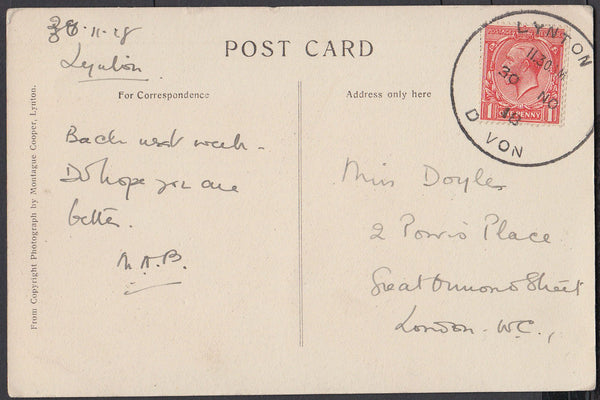 30-11-28
Lynton
POST CARD
For Correspondence
Address only here
Back next week -
Do hope you are
better.
M.A.B.
Miss Doyles
2 Powis Place
Great Ormond Street
London. W.C.,
From Copyright Photograph by Montague Cooper, Lynton.
LYNTON
11.30
30 NO
D VON
1 PENNY 1